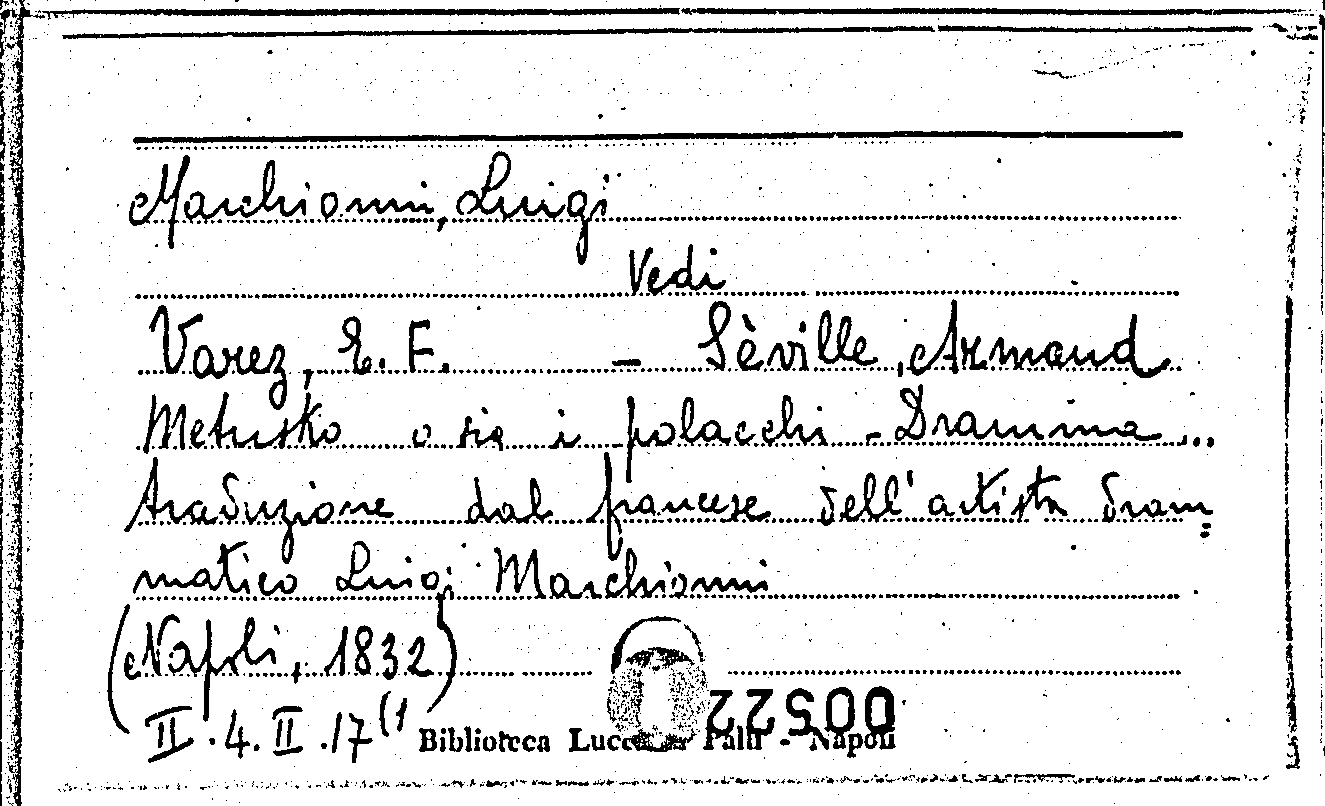 Marchionni, Luigi
Vedi
Varez, E. F. - Sèville, Armand
Metusko o sia i polacchi - Dramma...
traduzione dal francese dell'artista dram=
matico Luigi Marchionni
(Napoli, 1832)
II.4.II.17(1
Biblioteca Lucchesi Palli - Napoli
00522